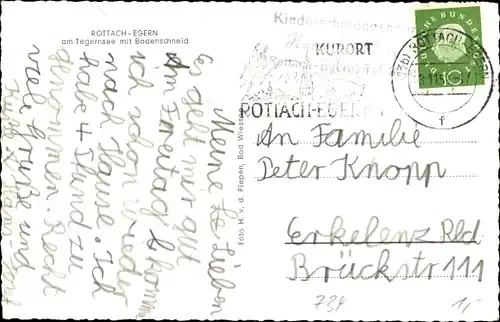 ROTTACH-EGERN
am Tegernsee mit Bodenschneid
Meine Lb Lieben
Es geht mir gut
Am Freitag b komm
ich schon wieder
nach Hause. Ich
habe 4 Pfund zu
genommen. Recht
viele Grüße und
Foto H. v. d. Piepen, Bad Wiessee
Kindererholungsheim
KURORT
ROTTACH-EGERN
ROTTACH-EGERN
f
DEUTSCHE BUNDESPOST
10
An Familie
Peter Knopp
Erkelenz Rld
Brückstr 111
734
1,-